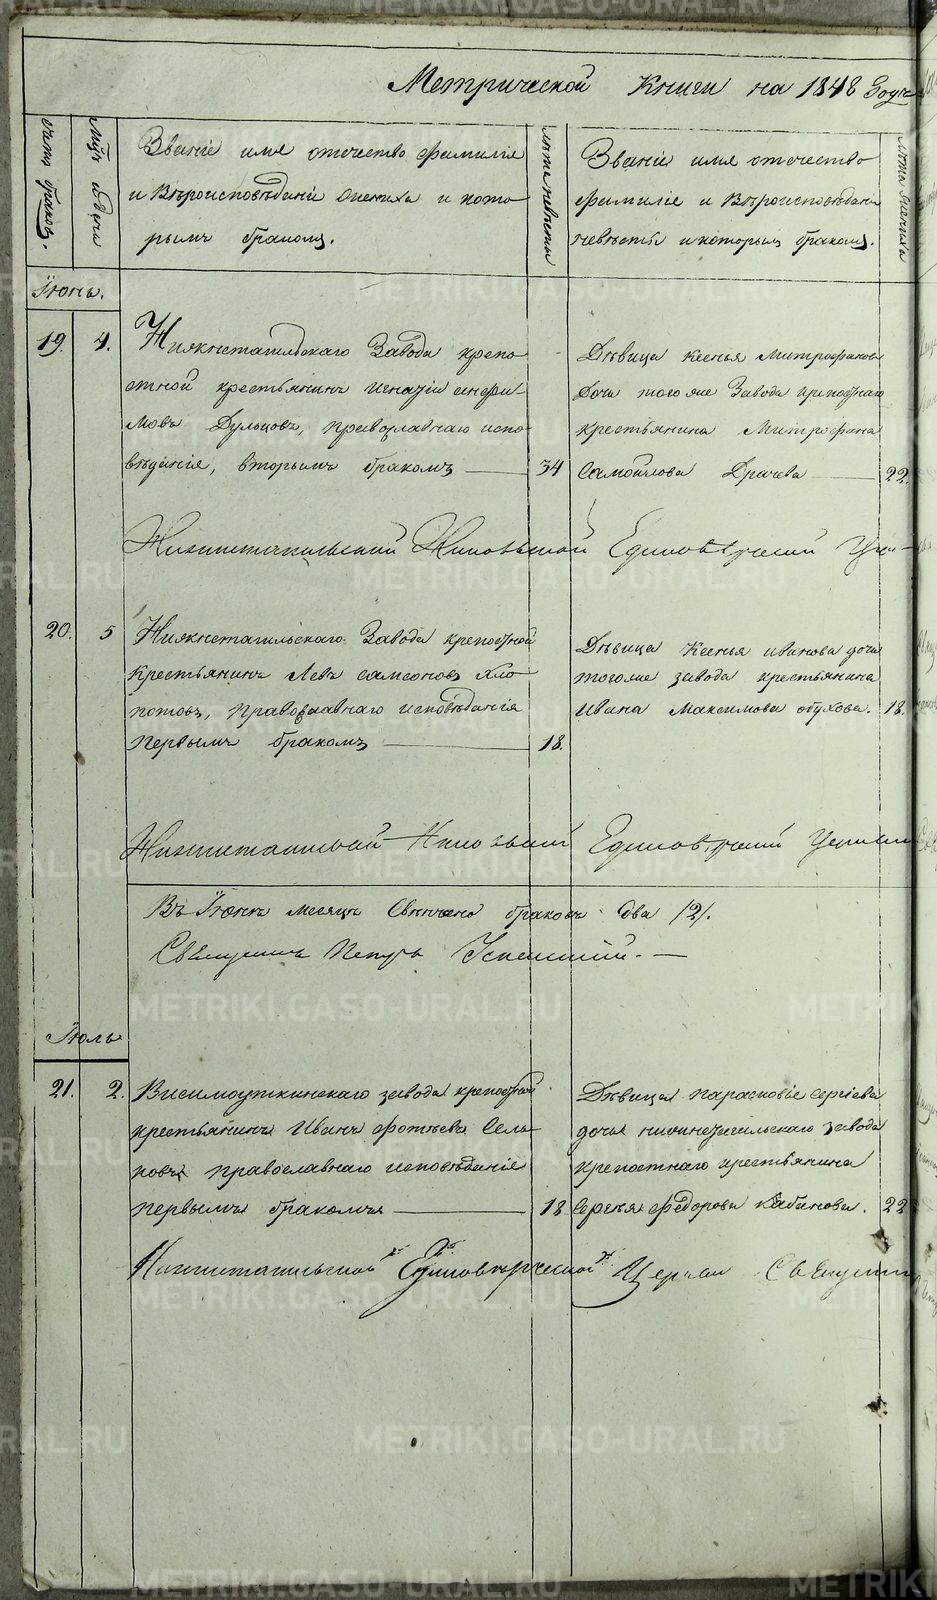 Метрической Книги на 1848 Годъ
счетъ браковъ.
Мцъ и дни
Званіе имя отечество фамиліе
и Вѣроисповѣданіе жениха и кото
рымъ бракомъ.
лѣта невѣсты
Званіе имя отечество
фамиліе и Вѣроисповѣдани
невѣсты и которымъ бракомъ.
лѣта жениха
Іюнь.
19. 4. Нижнетагильскаго Завода крепо
стной крестьянинъ Игнатій
мовъ Дульцовъ, православнаго испо
вѣданія, вторымъ бракомъ 34
Дѣвица Ксенья Митрофанова
Дочь того же Завода крепостнаго
крестьянина Митрофана
Самойлова Драчева 22.
Нижнетагильский Единовѣрческий
20. 5 Нижнетагильскаго Завода крепостной
Крестьянинъ Левъ Самсоновъ Хло
потовъ, Православнаго исповѣданія
первымъ бракомъ 18.
Дѣвица Ксенья Иванова дочь
того же завода крестьянина
Ивана Максимова Обухова. 18.
Единовѣрческий
Въ Іюнѣ месяцѣ Свѣнчано браковъ два /2/.
Священникъ Петръ Успенский.
Іюль
21. 2. Висимоуткинскаго завода крепостной
крестьянинъ Иванъ Фотѣевъ Сель
ковъ православнаго исповѣданіе
первымъ бракомъ 18
Дѣвица Парасковье Сергіева
дочья нижнетагильскаго завода
крепостнаго крестьянина
Сергея Федорова Кабанова. 22
Нижнетагильской Единовѣрческой Церкви Священник
METRIKI.GASO-URAL.RU